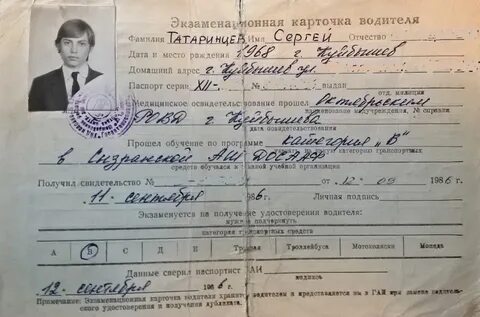 Экзаменационная карточка водителя
Фамилия Татаринцев Имя Сергей Отчество
Дата и место рождения 1968 г. Куйбышев
Домашний адрес г. Куйбышев ул.
Паспорт серии XII- № выдан
отд. милиции
Медицинское свидетельство прошел Октябрьским
наименование медучреждения, № справки
РОВД г. Куйбышева
дата освидетельствования
Прошел обучение по программе категория „В"
категорию транспортных
в Сызранской АШ ДОСААФ
средств обучался в какой учебной организации
Получил свидетельство № от 12 09 1986 г.
11 сентября 1986 г. Личная подпись
Экзаменуется на получение удостоверения водителя:
нужное подчеркнуть
категория транспортных средств
А В С Д Е Трамвая Троллейбуса Мотоколяски Мопеда
Данные сверил паспортист ГАИ
подпись
12 сентября 1986 г.
Примечание: Экзаменационная карточка водителя хранится водителем и представляется им в ГАИ при замене водительского удостоверения и получении дубликата.